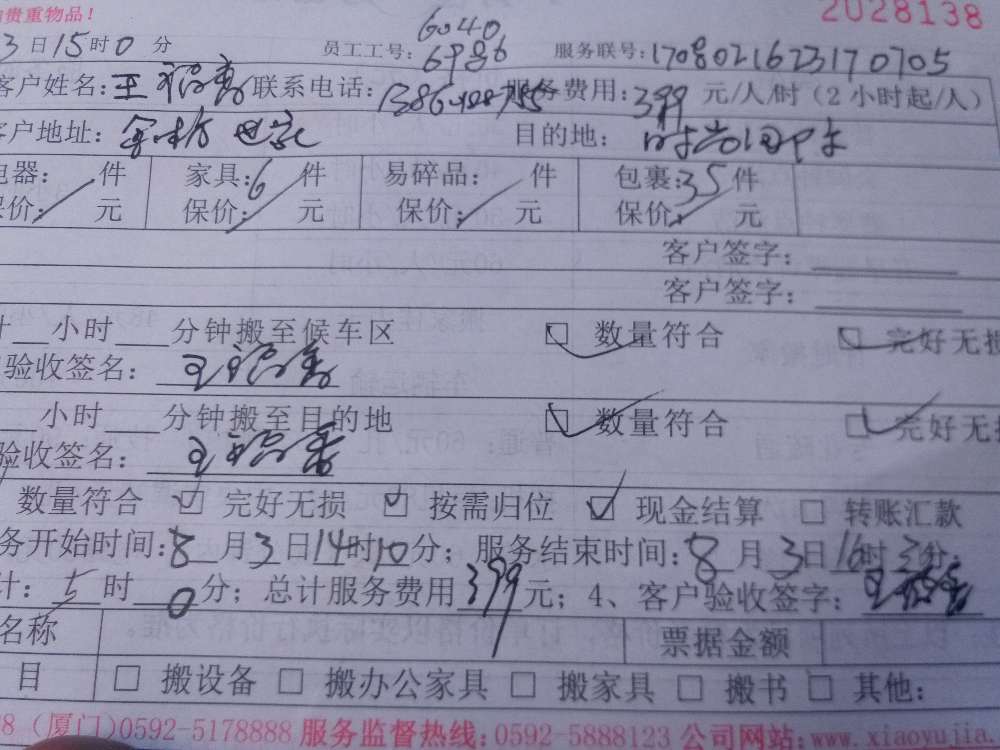 贵重物品！ 2028138
3 日 15 时 0 分 员工工号: 6040 服务联号: 1708021623170705
客户姓名: 王 联系电话: 服务费用: 399 元/人/时（2小时起/人）
客户地址: 目的地:
电器: 件 家具: 6 件 易碎品: 件 包裹: 35 件
保价: 元 保价: 元 保价: 元 保价: 元
客户签字:
客户签字:
计 小时 分钟搬至候车区 ☑ 数量符合 ☑ 完好无损
验收签名: 王
小时 分钟搬至目的地 ☑ 数量符合 ☑ 完好无损
验收签名: 王
数量符合 ☑ 完好无损 ☑ 按需归位 ☑ 现金结算 □ 转账汇款
务开始时间: 8 月 3 日 14 时 10 分; 服务结束时间: 8 月 3 日 16 时 3 分;
计: 5 时 0 分; 总计服务费用 399 元; 4、客户验收签字: 王
名称 票据金额
目 □ 搬设备 □ 搬办公家具 □ 搬家具 □ 搬书 □ 其他:
8（厦门)0592-5178888 服务监督热线:0592-5888123 公司网站:www.xiaoyujia.